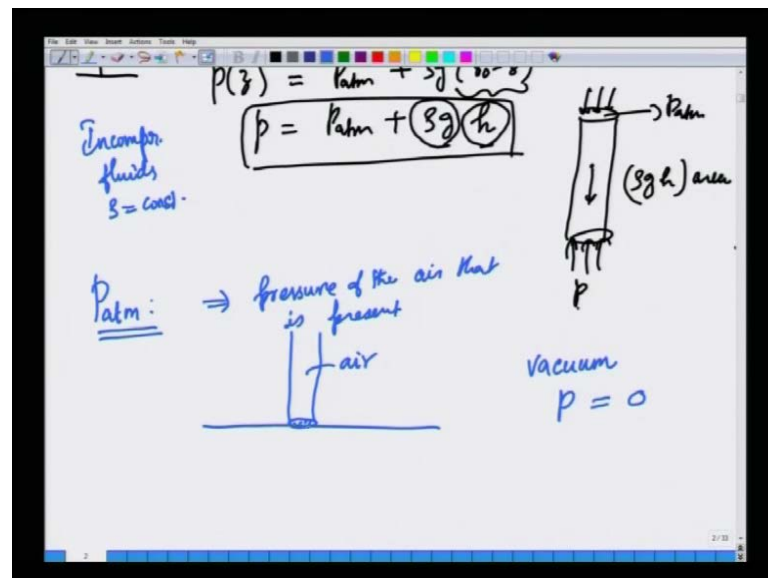 File Edit View Insert Actions Tools Help
p(z) = Patm + ρg (z0-z)
p = Patm + ρg h
Patm
(ρgh) area
p
Incompr.
fluids
ρ = const.
Patm : ⇒ pressure of the air that
is present
air
vacuum
p = 0
2/33
2